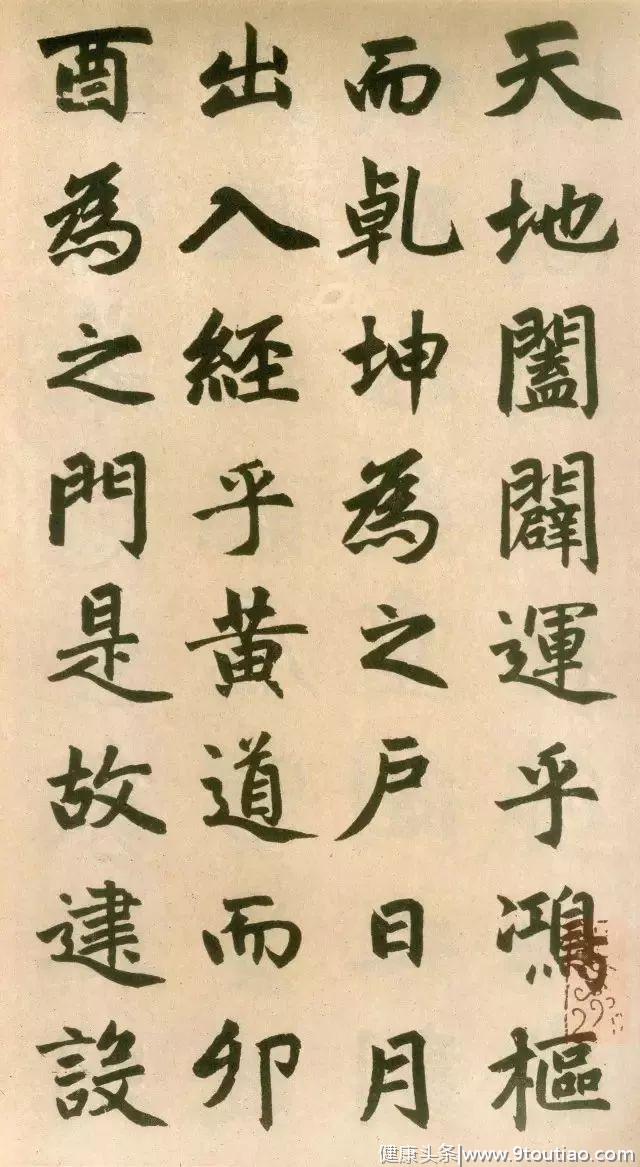 天地闔闢運乎鴻樞
而乹坤為之户日月
出入經乎黄道而卯
酉為之門是故建設
健康头条|www.9toutiao.com